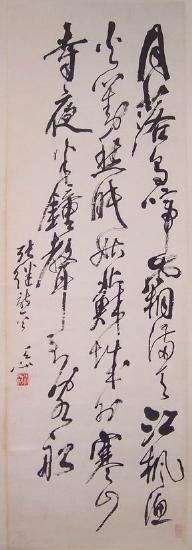 月落烏啼霜滿天江楓漁
火對愁眠姑蘇城外寒山
寺夜半鐘聲到客船
張継詩